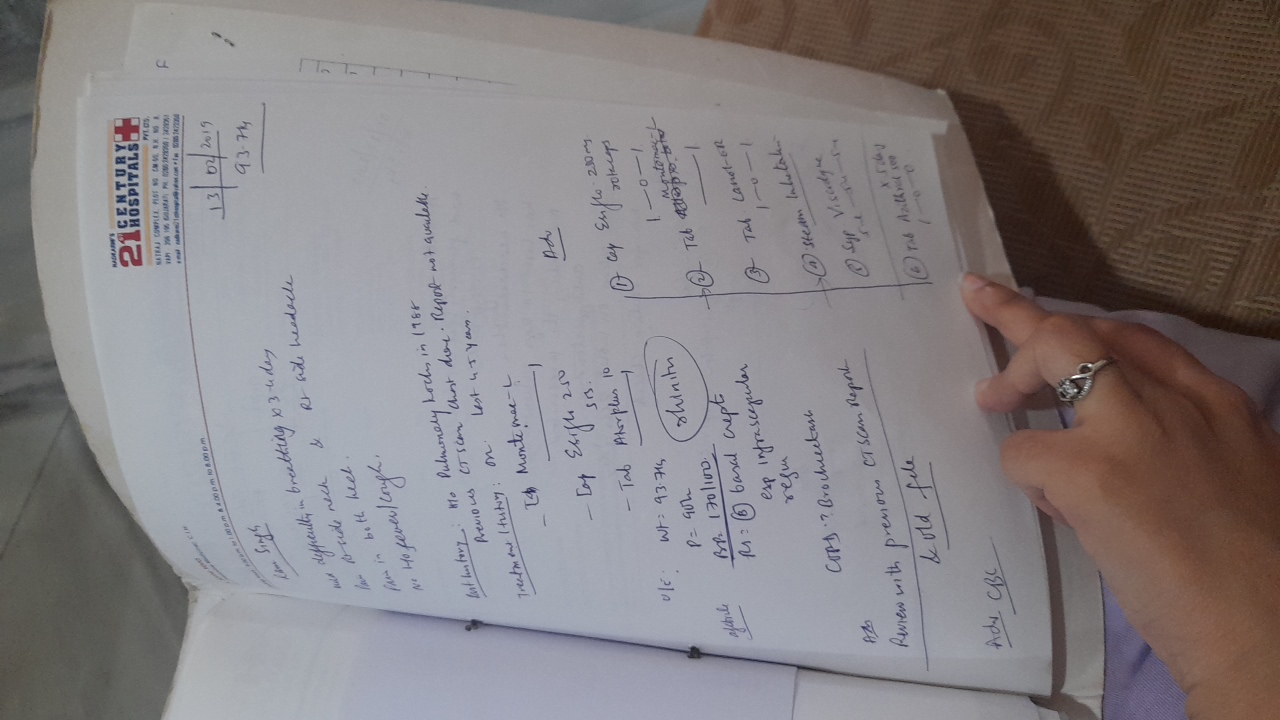 NADKARNI'S
21st CENTURY
HOSPITALS
PVT. LTD.
NATRAJ COMPLEX, PLOT NO. CM-55, N.H. NO. 8,
VAPI
to 1.00 p.m. & 4.00 p.m. to 8.00 p.m.
13/02/2019
93.7kg
Singh
mild difficulty in breathing x 3-4 day
Pain Rt side neck & Rt side headache
Pain in both heel.
No H/o fever/cough.
Past history: H/o Pulmonary kochs in 1988
Previous CT Scan Chest done. Report not available.
Treatment history: on last 4-5 years.
- Tab Montemac-L
1
- Cap Esiflo 250
- Tab Atorplus 10
1
O/E: Wt = 93.7kg
P = 90/m
BP = 170/100
afebrile
rhinitis
Rs = B basal crept
esp infrascapular
region
COPD ? Bronchiectasis
Adv
Review with previous CT Scan Report
& old file
Adv CBC
Adv
1 Cap Esiflo 250mg
rotacaps
1 — 0 — 1
2 Tab Montemac-L
1
3 Tab
1 — 0 — 1
4 Steam Inhalation
5 Syp Viscodyne
6 Tab Azithral 500 x 5 day
1 — 0 — 0